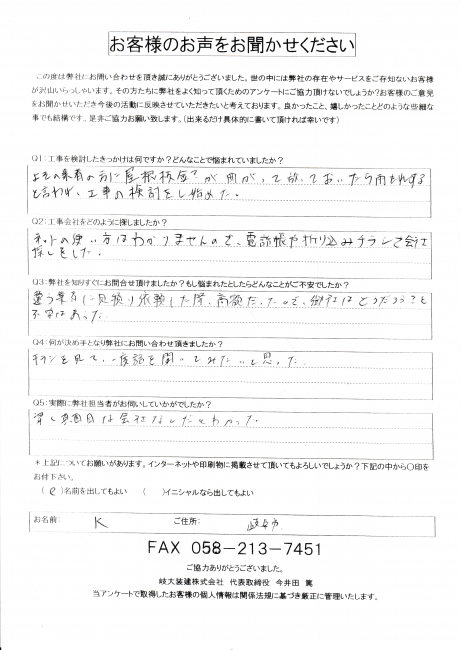 お客様のお声をお聞かせください
この度は弊社にお問い合わせを頂き誠にありがとうございました。世の中には弊社の存在やサービスをご存知ないお客様
が沢山いらっしゃいます。その方たちに弊社をよく知って頂くためのアンケートにご協力頂けないでしょうか？お客様のご意見
をお聞かせいただき今後の活動に反映させていただきたいと考えております。良かったこと、嬉しかったことどのような些細な
事でも結構です。是非ご協力お願い致します。（出来るだけ具体的に書いて頂ければ幸いです）
Q1：工事を検討したきっかけは何ですか？どんなことで悩まれていましたか？
よその業者の方に屋根板金が曲がって放っておいたら雨もれする
と言われ、工事の検討をし始めた。
Q2：工事会社をどのように探しましたか？
ネットの使い方はわかりませんので、電話帳や折り込みチラシで会社
探しをした。
Q3：弊社を知りすぐにお問合せ頂けましたか？もし悩まれたとしたらどんなことがご不安でしたか？
違う業者に見積り依頼した際、高額だったので、御社はどうだろう？と
不安はあった。
Q4：何が決め手となり弊社にお問い合わせ頂きましたか？
チラシを見て、一度話を聞いてみたいと思った。
Q5：実際に弊社担当者がお伺いしていかがでしたか？
真面目な会社なんだとわかった。
＊上記についてお願いがあります。インターネットや印刷物に掲載させて頂いてもよろしいでしょうか？下記の中から〇印を
お付下さい。
（ ）名前を出してもよい （ ）イニシャルなら出してもよい
お名前： K ご住所： 岐阜市
FAX 058－213－7451
ご協力ありがとうございました。
岐大装建株式会社 代表取締役 今井田 篤
当アンケートで取得したお客様の個人情報は関係法規に基づき厳正に管理いたします。